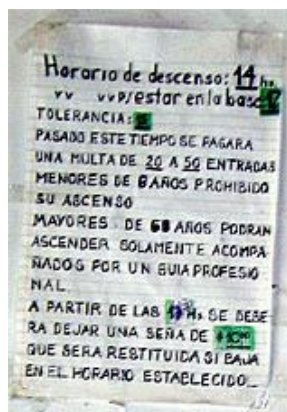 Horario de descenso: 14 hs.
vv vv p/estar en la base
TOLERANCIA:
PASADO ESTE TIEMPO SE PAGARA
UNA MULTA DE 20 A 50 ENTRADAS
MENORES DE 6 AÑOS PROHIBIDO
SU ASCENSO
MAYORES DE 60 AÑOS PODRAN
ASCENDER SOLAMENTE ACOMPA
ÑADOS POR UN GUIA PROFESIO
NAL.
A PARTIR DE LAS Hs SE DEBE
RA DEJAR UNA SEÑA DE
QUE SERA RESTITUIDA SI BAJA
EN EL HORARIO ESTABLECIDO_